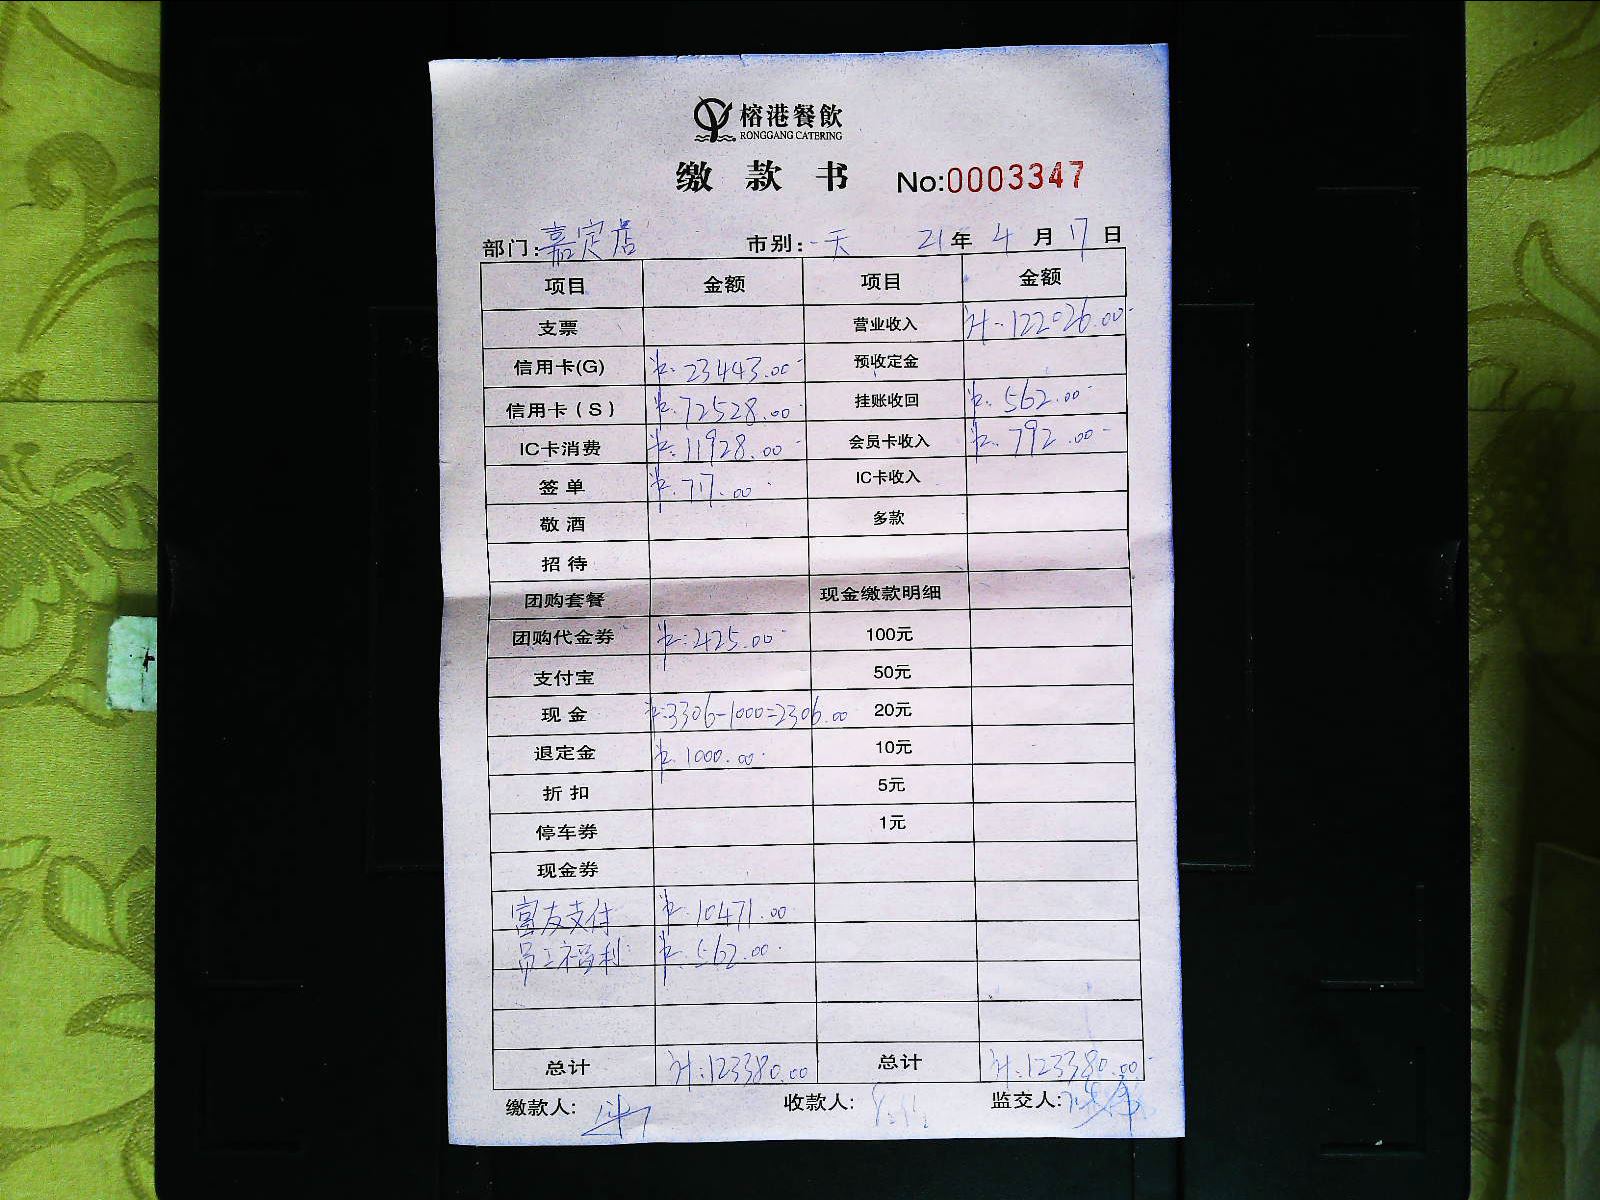 榕港餐飲
RONGGANG CATERING
缴款书 No:0003347
部门:嘉定店 市别:一天 21年4月17日
项目 金额 项目 金额
支票 营业收入 计:122026.00
信用卡(G) ¥:23443.00 预收定金
信用卡(S) ¥:72528.00 挂账收回 ¥:562.00
IC卡消费 ¥:11928.00 会员卡收入 ¥:792.00
签单 ¥:717.00 IC卡收入
敬酒 多款
招待
团购套餐 现金缴款明细
团购代金券 ¥:425.00 100元
支付宝 50元
现金 ¥:3306-1000=2306.00 20元
退定金 ¥:1000.00 10元
折扣 5元
停车券 1元
现金券
富友支付 ¥:10471.00
员工福利 ¥:562.00
总计 计:123380.00 总计 计:123380.00
缴款人: 收款人: 监交人: